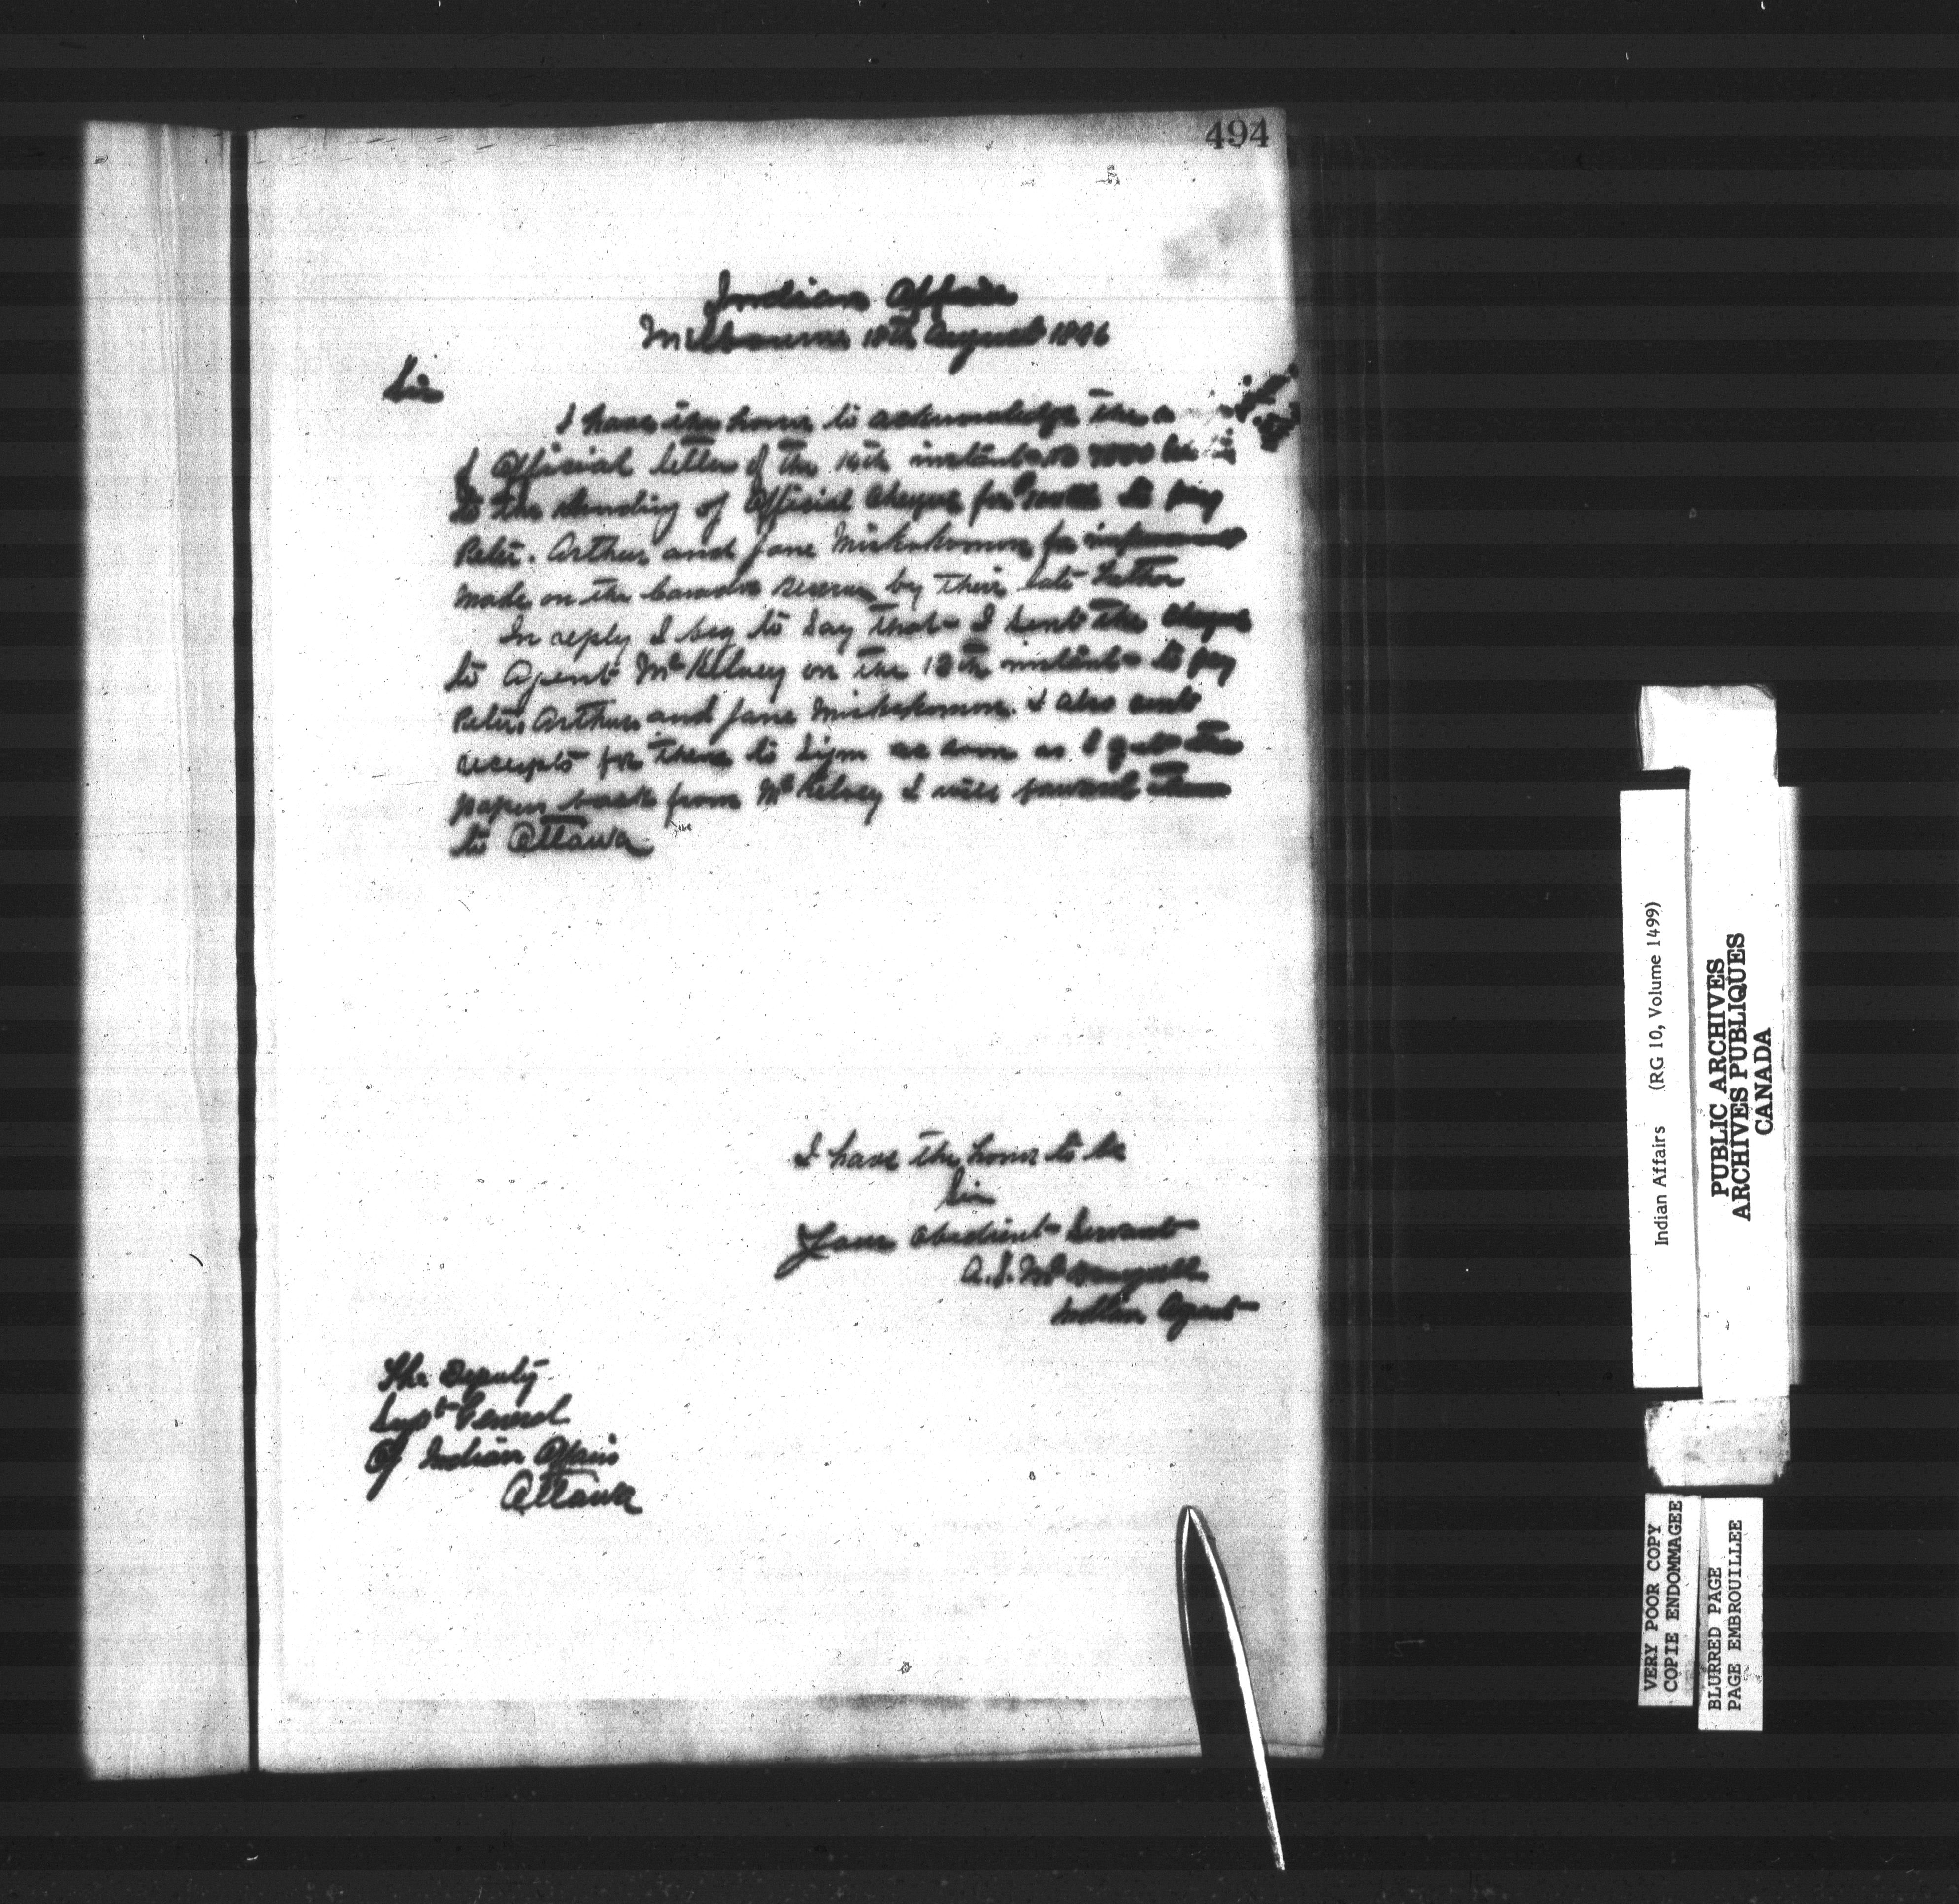 494
Indian Office
Melbourne 18th August 1896
Sir
I have the honor to acknowledge the
of Official letter of the 14th instant No
to the sending of Official Cheque for to pay
Peter. Arthur and Jane Miskokomon for
made on the Caradoc reserve by their late Father
In reply I beg to say that I sent the Cheque
to Agent McKelvey on the 13th instant to pay
Peter Arthur and Jane Miskokomon. & also sent
receipts for them to Sign as soon as I get the
papers back from McKelvey I will forward them
to Ottawa
I have the honor to be
Sir
Your Obedient Servant
A. S. McDougall
Indian Agent
The Deputy
Supt General
Of Indian Affairs
Ottawa
Indian Affairs (RG 10, Volume 1499)
PUBLIC ARCHIVES
ARCHIVES PUBLIQUES
CANADA
VERY POOR COPY
COPIE ENDOMMAGEE
BLURRED PAGE
PAGE EMBROUILLEE